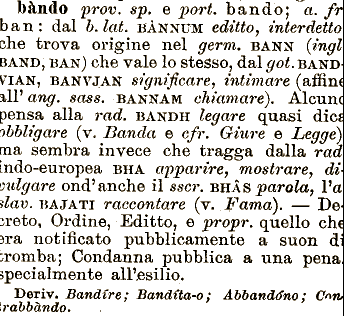 bàndo prov. sp. e port. bando; a. fr
ban: dal b. lat. BÀNNUM editto, interdetto
che trova origine nel germ. BANN (ingl
BAND, BAN) che vale lo stesso, dal got. BAND-
VIAN, BANVJAN significare, intimare (affine
all'ang. sass. BANNAM chiamare). Alcuno
pensa alla rad. BANDH legare quasi dica
obbligare (v. Banda e cfr. Giure e Legge)
ma sembra invece che tragga dalla rad
indo-europea BHA apparire, mostrare, di-
vulgare ond'anche il sscr. BHÂS parola, l'a
slav. BAJATI raccontare (v. Fama). — De-
creto, Ordine, Editto, e propr. quello che
era notificato pubblicamente a suon di
tromba; Condanna pubblica a una pena,
specialmente all'esilio.
Deriv. Bandíre; Bandíta-o; Abbandóno; Con
trabbàndo.